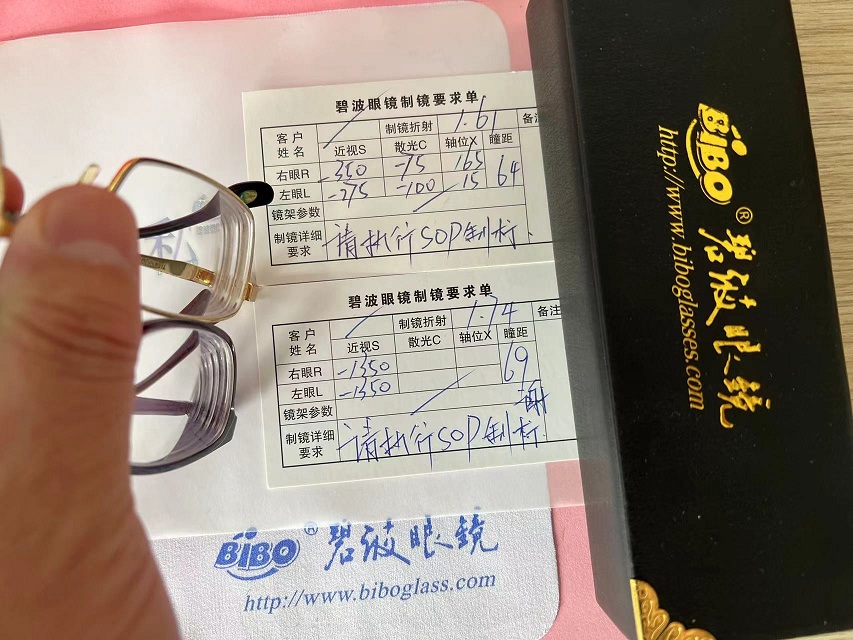 碧波眼镜制镜要求单
客户姓名 制镜折射 1.61 备注
近视S 散光C 轴位X 瞳距
右眼R -350 -75 165 64
左眼L -275 -100 15
镜架参数
制镜详细要求 请执行SOP制标.
碧波眼镜制镜要求单
客户姓名 制镜折射 1.74 备注
近视S 散光C 轴位X 瞳距
右眼R -1350 69
左眼L -1350
镜架参数
制镜详细要求 请执行SOP制标.
BiBO® 碧波眼镜
http://www.biboglass.com
BiBO® 碧波眼镜
http://www.biboglasses.com